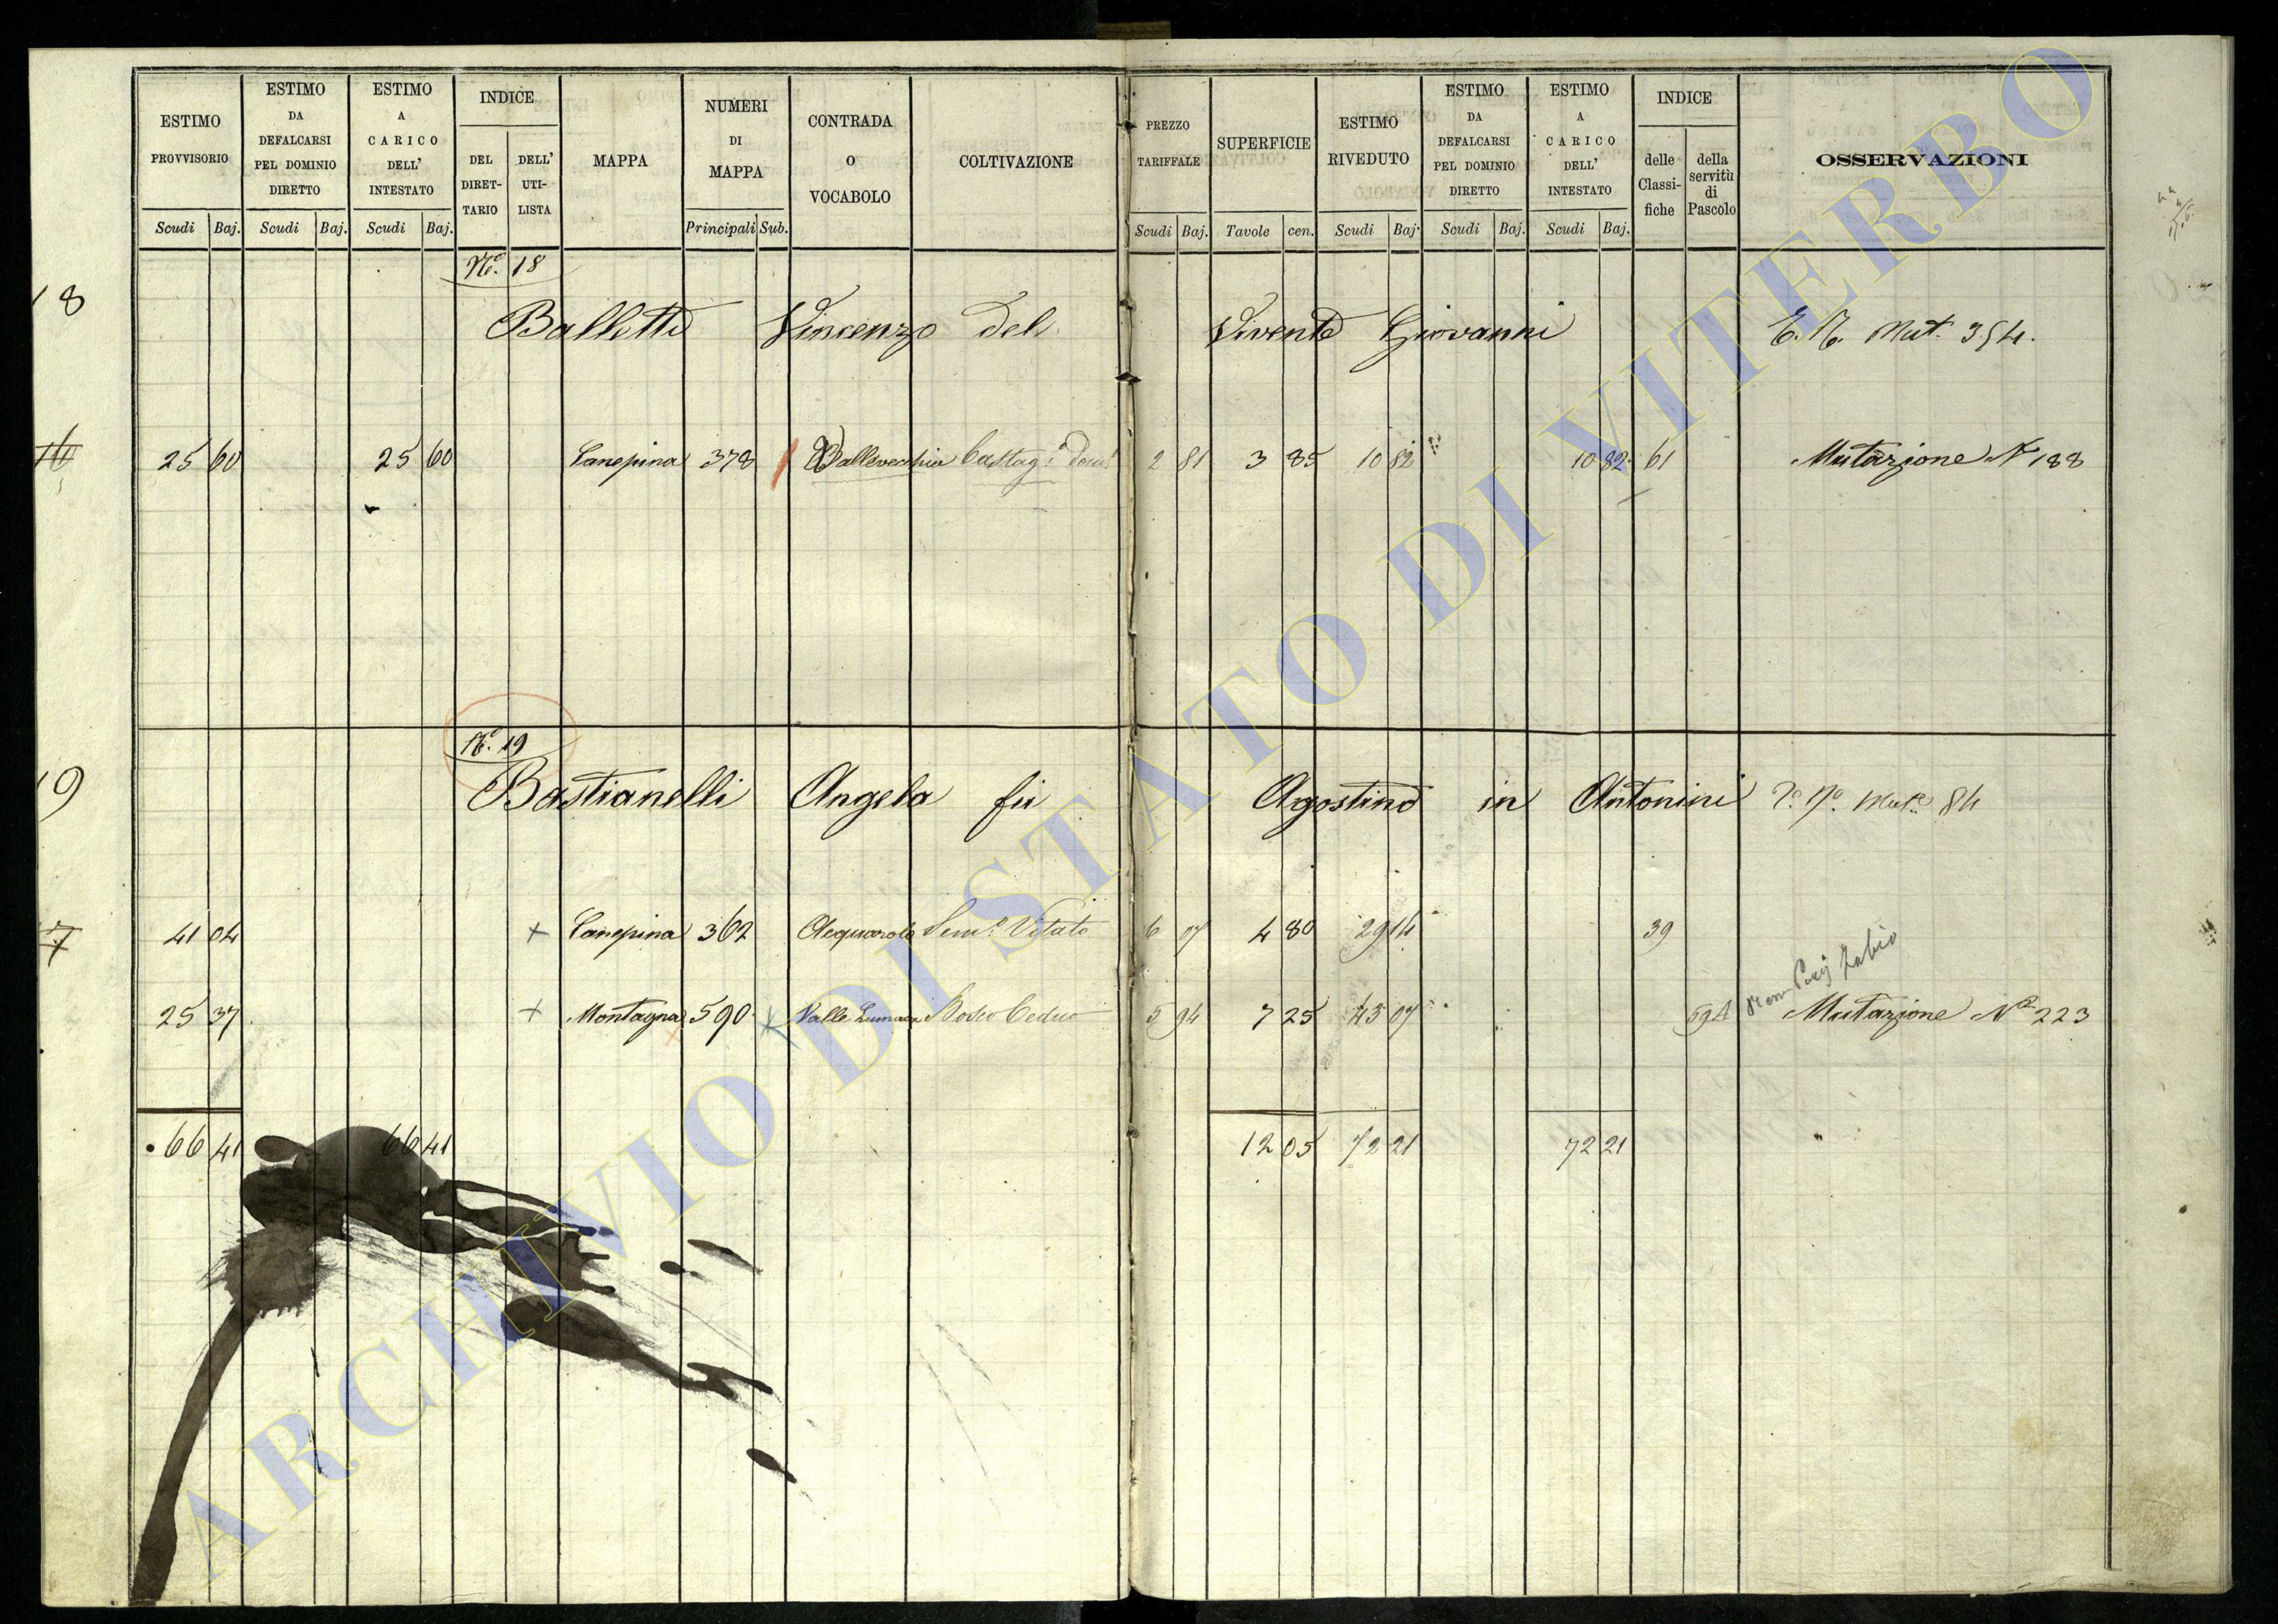 ESTIMO PROVVISORIO
ESTIMO DA DEFALCARSI PEL DOMINIO DIRETTO
ESTIMO A CARICO DELL' INTESTATO
INDICE
DEL DIRET-TARIO
DELL' UTI-LISTA
MAPPA
NUMERI DI MAPPA
CONTRADA O VOCABOLO
COLTIVAZIONE
PREZZO TARIFFALE
SUPERFICIE
ESTIMO RIVEDUTO
ESTIMO DA DEFALCARSI PEL DOMINIO DIRETTO
ESTIMO A CARICO DELL' INTESTATO
INDICE
delle Classi-fiche
della servitù di Pascolo
OSSERVAZIONI
Scudi Baj. Scudi Baj. Scudi Baj. Principali Sub. Scudi Baj. Tavole cen. Scudi Baj. Scudi Baj. Scudi Baj.
N.º 18
18 Balletti Vincenzo del Vivente Giovanni Mut. 354.
16 25 60 25 60 Canepina 378 Vallevecchia Castag. 2 81 3 85 10 82 10 82 61 Mutazione N 188
N.º 19
19 Bastianelli Angela fu Agostino in Antonini 84
17 41 04 + Canepina 362 Acquarola Sem.º Vitato 6 07 4 80 29 14 39
25 37 + Montagna 590 Valle Lumaca Bosco Ceduo 5 94 7 25 43 07 59 Mutazione Nº 223
66 41 66 41 12 05 72 21 72 21
ARCHIVIO DI STATO DI VITERBO